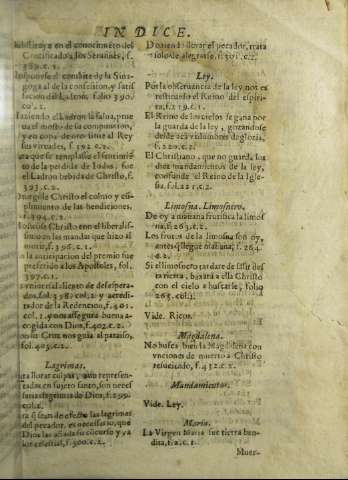 INDICE.
en el conocimiẽto del
Crucificado a los Serafines, f.
el combite de la Sina-
goga al de la confession, y satis
facion del Ladron, folio 390.
col.2.
el Ladron la salua, prue
ua el modo de su compuncion,
y en copa de oro sirue al Rey
sus virtudes, f. 392. c.2.
que se templasse el sentimiẽ
to de la perdida de Iudas, fue
el Ladron bebida de Christo, f.
393. c.2.
Christo el colmo y cũ-
plimiento de las bendiciones,
f.394. c.2.
Christo con el
en las mandas que hizo al
f.396. c.1.
la anticipacion del premio fue
preferido a los Apostoles, fol.
397.c.1.
aliento de desespera-
dos, fol. 398. col.2. y acredi-
tador de la Redencion, f.401.
c.2. y nos assegura buena a-
cogida con Dios, f.402. c.2.
Cruz nos guia al paraiso,
fol.405.c.2.
Lagrimas.
llorar culpas, aun represen-
tadas en sujeto santo, son neces
sarias lagrimas de Dios, f.299.
col.2.
q̃ sean de efecto las lagrimas
del pecador, es necessario, que
Dios las añada su concurso y va
lor celestial, f.300.c.2.
De oir llorar el pecador, trata
solo de alegrarse, f.301.c.2.
Ley.
Por la obseruancia de la ley nos es
restituido el Reino del espiri-
tu, f.219.c.1.
El Reino de los cielos se gana por
la guarda de la ley, gozandose
desde acà vislumbres de gloria,
f.220.c.2.
El Christiano, que no guarda los
diez mandamientos de la ley,
confunde al Reino de la Igle-
sia, fol.221.c.2.
Limosna. Limosnero.
De oy a mañana fructifica la limos
na, f.263.c.2.
Los frutos de la limosna son oy,
antes q̃ llegue mañana, f. 264.
c.2.
Si el limosnero tardare de
la tierra, baxarà a ella Christo
con el cielo a buscarle, folio
265. col.2.
Vide. Ricos.
Magdalena.
No busca bien la Magdalena con
vnciones de muerto a Christo
resucitado, f.412.c.2.
Mandamientos.
Vide. Ley.
Maria.
La Virgen Maria fue tierra ben-
dita, f.2.c.1.
Muer-